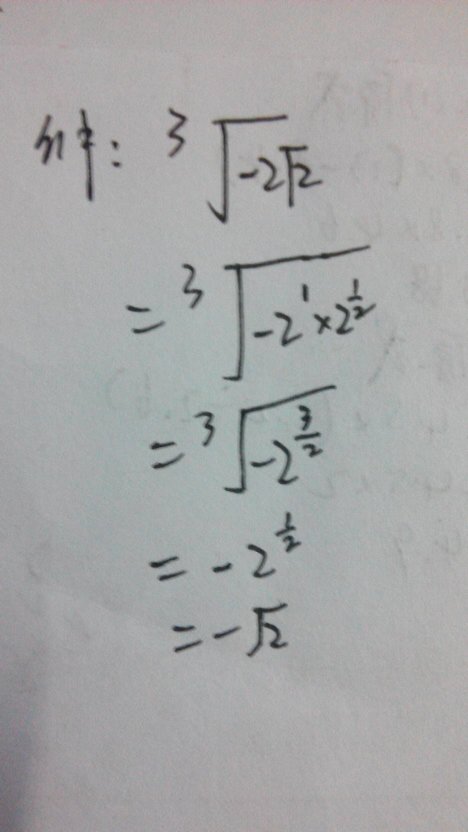 解: ³√(-2√2)
= ³√(-2¹×2^(1/2))
= ³√(-2^(3/2))
= -2^(1/2)
= -√2